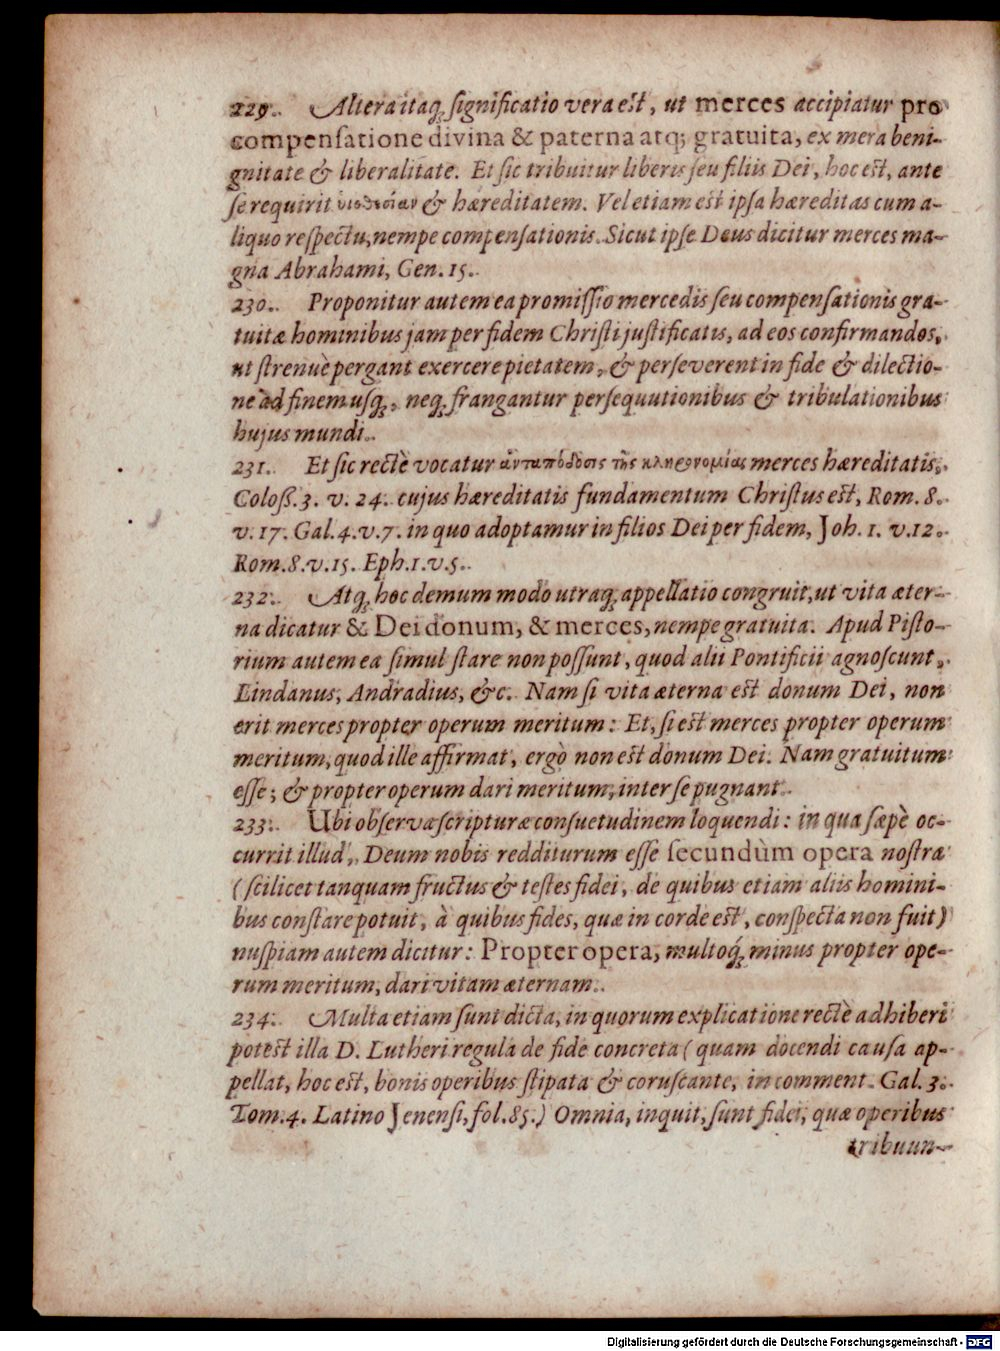 229. Altera itaq; ſignificatio vera eſt, ut merces accipiatur pro
compenſatione divina & paterna atq; gratuita, ex mera beni-
gnitate & liberalitate. Et ſic tribuitur liberis ſeu filiis Dei, hoc eſt, ante
ſe requirit υἱοθεσίαν & hæreditatem. Vel etiam eſt ipſa hæreditas cum a-
liquo reſpectu, nempe compenſationis. Sicut ipſe Deus dicitur merces ma-
gna Abrahami, Gen. 15.
230. Proponitur autem ea promiſſio mercedis ſeu compenſationis gra-
tuitæ hominibus jam per fidem Chriſti juſtificatis, ad eos confirmandos,
ut ſtrenuè pergant exercere pietatem, & perſeverent in fide & dilectio-
ne ad finem uſq;, neq; frangantur perſequutionibus & tribulationibus
hujus mundi.
231. Et ſic rectè vocatur ἀνταπόδοσις τῆς κληρονομίας merces hæreditatis,
Coloſſ. 3. v. 24. cujus hæreditatis fundamentum Chriſtus eſt, Rom. 8.
v. 17. Gal. 4. v. 7. in quo adoptamur in filios Dei per fidem, Joh. 1. v. 12.
Rom. 8. v. 15. Eph. 1. v. 5.
232. Atq; hoc demum modo utraq; appellatio congruit, ut vita æter-
na dicatur & Dei donum, & merces, nempe gratuita. Apud Piſto-
rium autem ea ſimul ſtare non poſſunt, quod alii Pontificii agnoſcunt,
Lindanus, Andradius, &c. Nam ſi vita æterna eſt donum Dei, non
erit merces propter operum meritum: Et, ſi eſt merces propter operum
meritum, quod ille affirmat, ergò non eſt donum Dei. Nam gratuitum
eſſe; & propter operum dari meritum, inter ſe pugnant.
233. Ubi obſerva ſcripturæ conſuetudinem loquendi: in qua ſæpè oc-
currit illud, Deum nobis redditurum eſſe ſecundùm opera noſtra
(ſcilicet tanquam fructus & teſtes fidei, de quibus etiam aliis homini-
bus conſtare potuit, à quibus fides, quæ in corde eſt, conſpecta non fuit)
nuſpiam autem dicitur: Propter opera, multoq; minus propter ope-
rum meritum, dari vitam æternam.
234. Multa etiam ſunt dicta, in quorum explicatione rectè adhiberi
poteſt illa D. Lutheri regula de fide concreta (quam docendi cauſa ap-
pellat, hoc eſt, bonis operibus ſtipata & coruſcante, in comment. Gal. 3.
Tom. 4. Latino Jenenſi, fol. 85.) Omnia, inquit, ſunt fidei, quæ operibus
tribuun-
Digitalisierung gefördert durch die Deutsche Forschungsgemeinschaft - DFG